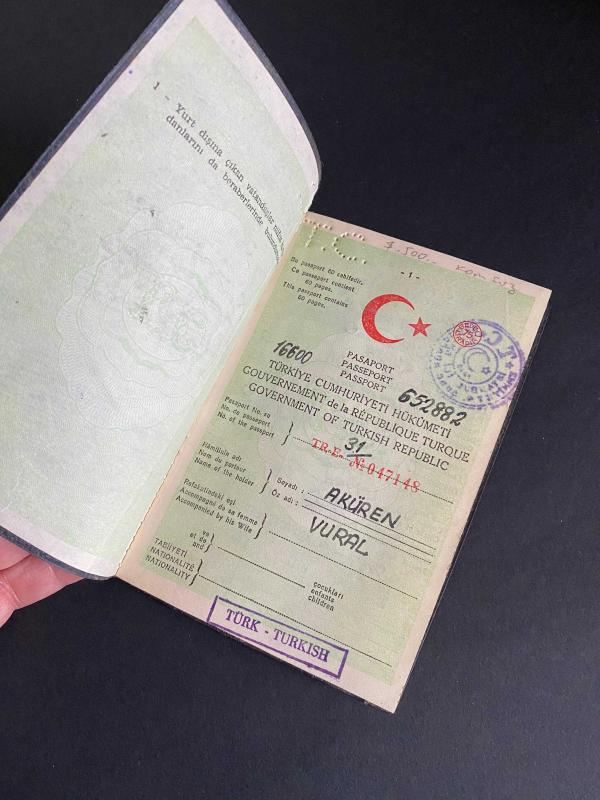 1 - Yurt dışına çıkan vatandaşlar nüfus
danlarını da beraberlerinde
T.C.
$ 500.-
- 1 -
Bu pasaport 60 sahifedir.
Ce passeport contient
60 pages.
This passport contains
60 pages.
16600
PASAPORT
PASSEPORT
PASSPORT
652882
TÜRKİYE CUMHURİYETİ HÜKÜMETİ
GOUVERNEMENT de la RÉPUBLIQUE TURQUE
GOVERNMENT OF TURKISH REPUBLIC
Pasaport No. su
No. du passeport
No. of the passport
31/
TR.E. № 047148
Hâmilinin adı
Nom du porteur
Name of the holder
Soyadı :
AKÜREN
Öz adı :
VURAL
Refakatindeki eşi
Accompagné de sa femme
Accompanied by his Wife
ve
et de
and
çocukları
enfants
children
TABİİYETİ
NATIONALITÉ
NATIONALITY
TÜRK - TURKISH